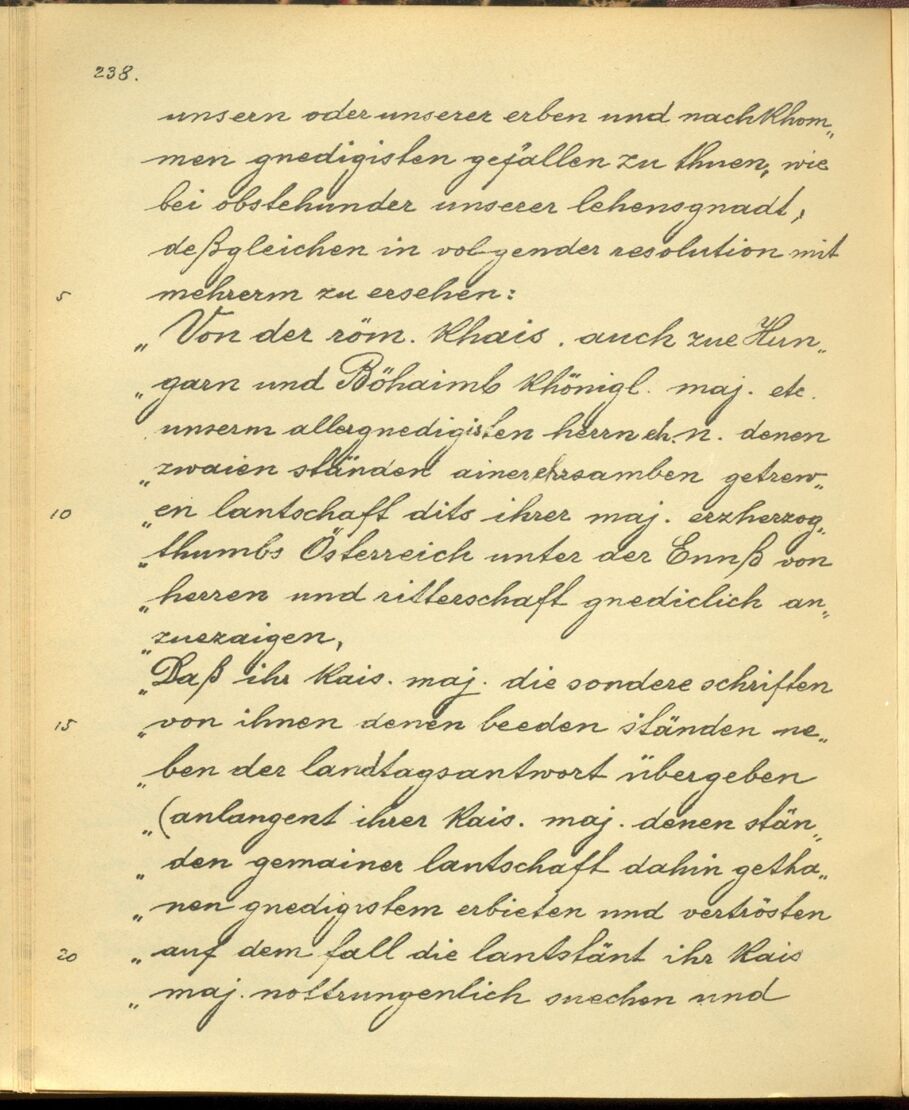 238.
unsern oder unserer erben und nachkhom„
men gnedigisten gefallen zu thuen, wie
bei obstehunder unserer lehensgnadt,
deßgleichen in volgender resolution mit
5 mehrerm zu ersehen:
„Von der röm. Khais. auch zue Hun„
„garn und Böhaimb khönigl. maj. etc.
unserm allergnedigisten herrn eh. n. denen
„zwaien ständen ainer ehrsamben getrew„
10 „en lantschaft dits ihrer maj. erzherzog„
„thumbs Österreich unter der Ennß von
„herren und ritterschaft gnediclich an„
„zuezaigen,
„Daß ihr kais. maj. die sondere schriften
15 „von ihnen denen beeden ständen ne„
„ben der landtagsantwort übergeben
„(anlangent ihrer kais. maj. denen stän„
„den gemainer lantschaft dahin getha„
„nen gnedigistem erbieten und vertrösten
20 „auf dem fall die lantstänt ihr kais
„maj. nottrungenlich suechen und